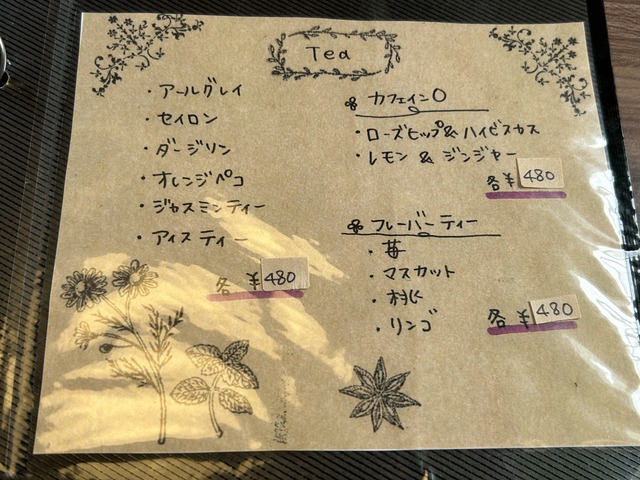 Tea
・アールグレイ
・セイロン
・ダージリン
・オレンジペコ
・ジャスミンティー
・アイスティー
各 ¥480
カフェイン0
・ローズヒップ&ハイビスカス
・レモン & ジンジャー
各 ¥480
フレーバーティー
・苺
・マスカット
・桃
・リンゴ
各 ¥480